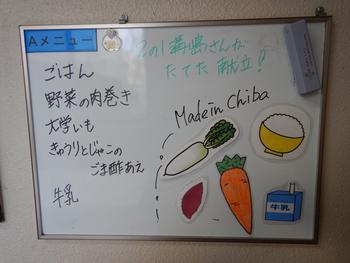 Aメニュー
2の1 さんが
たてた献立！
ごはん
野菜の肉巻き
大学いも
きゅうりとじゃこの
ごま酢あえ
牛乳
Made in Chiba
牛乳